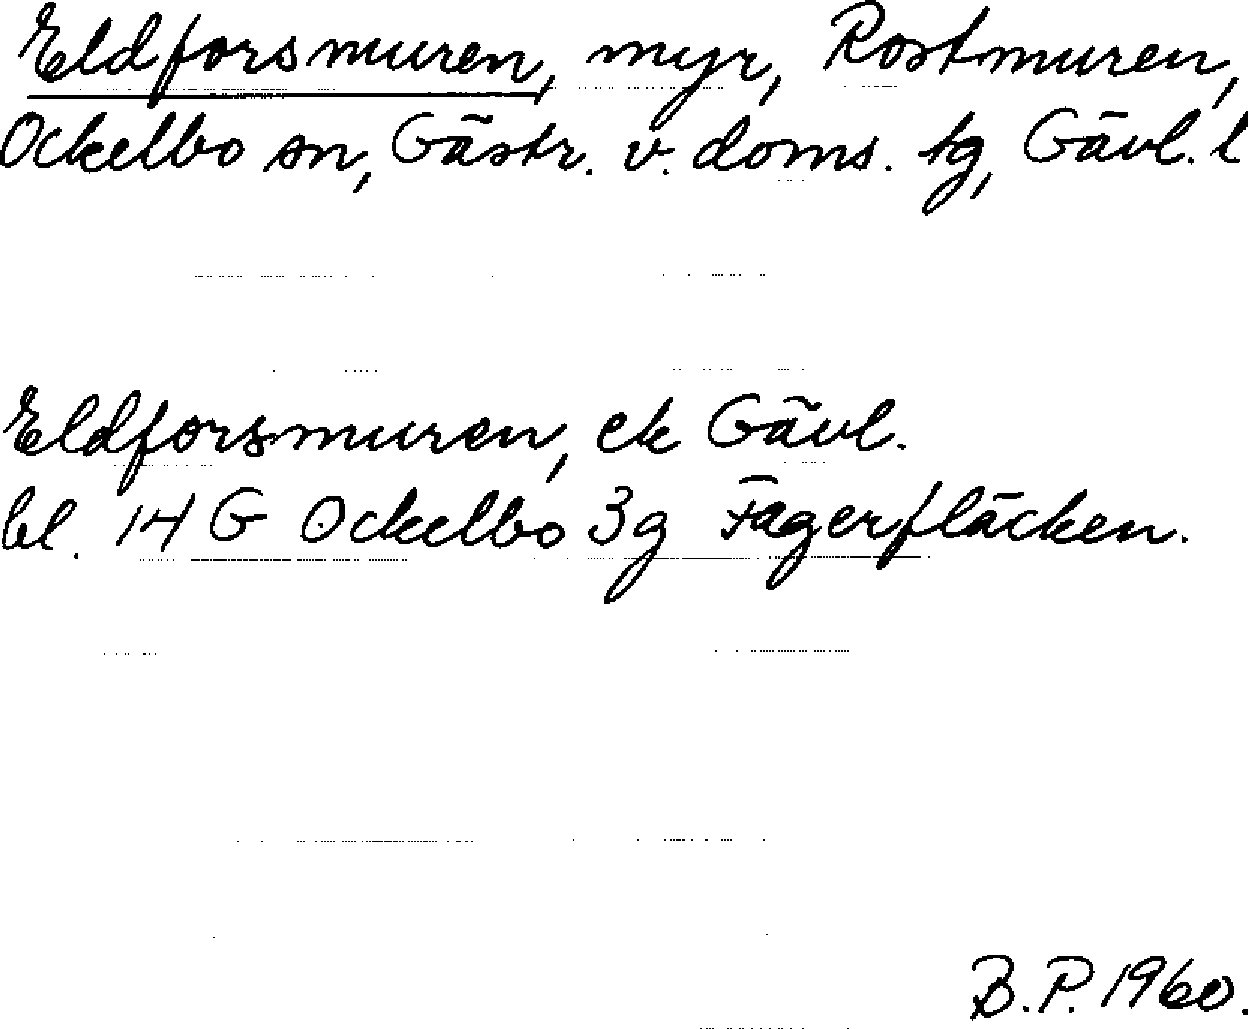 Eldforsmuren, myr, Rostmuren,
Ockelbo sn, Gästr. v. doms. tg, Gävl. l
Eldforsmuren, ek Gävl.
bl. 14 G Ockelbo 3g Fagerfläcken.
B.P. 1960.